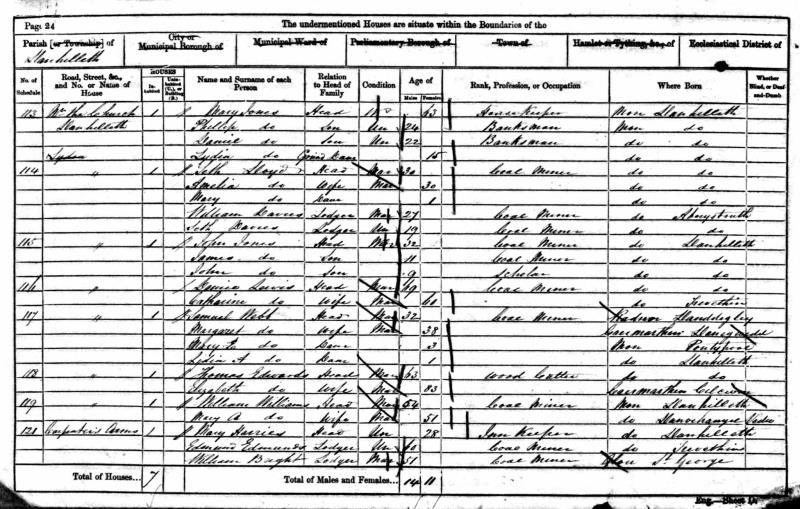 Page 24
The undermentioned Houses are situate within the Boundaries of the
Parish [or Township] of
Llanhilleth
City or Municipal Borough of
Municipal Ward of
Parliamentary Borough of
Town of
Hamlet or Tything, &c., of
Ecclesiastical District of
No. of Schedule
Road, Street, &c., and No. or Name of House
HOUSES
Inhabited
Uninhabited (U.), or Building (B.)
Name and Surname of each Person
Relation to Head of Family
Condition
Age of
Males
Females
Rank, Profession, or Occupation
Where Born
Whether Blind, or Deaf-and-Dumb
113 Nr the Church 1 Mary Jones Head 63 House Keeper Mon Llanhilleth
Llanhilleth Phillip do Son Un 24 Banksman Mon do
Daniel do Son Un 22 Banksman do do
Lydia do Grand Daur 15 do do
114 " 1 Seth Lloyd Head Mar 30 Coal Miner do do
Amelia do Wife Mar 30 do do
Mary do Daur 1 do do
William Davies Lodger Mar 27 Coal Miner do Abrystruth
Seth Davies Lodger Un 19 Coal Miner do do
115 " 1 John Jones Head Mar 32 Coal Miner do Llanhilleth
James do Son 11 Coal Miner do do
John do Son 9 Scholar do do
116 " Lewis Head Mar 69 Coal Miner do do
Catharine do Wife Mar 60 do Trevethin
117 " 1 Samuel Webb Head Mar 32 Coal Miner Radnor Llanddegley
Margaret do Wife Mar 38 Carmarthen
Mary do Daur 3 Mon Pontypool
Lydia A do Daur 1 do Llanhilleth
118 " 1 Thomas Edwards Head Mar 63 Wood Cutter do do
Elizabeth do Wife Mar 83 Carmarthen
119 " 1 William Williams Head Mar 54 Coal Miner Mon Llanhilleth
Mary A do Wife Mar 51 do
121 Carpenters Arms 1 Mary Harries Head Un 28 Inn Keeper do Llanhilleth
Edmund Edmunds Lodger Un 60 Coal Miner do Trevethin
William Lodger Mar 51 Coal Miner Glam St George
Total of Houses... 7
Total of Males and Females... 14 11
Eng.—Sheet D.